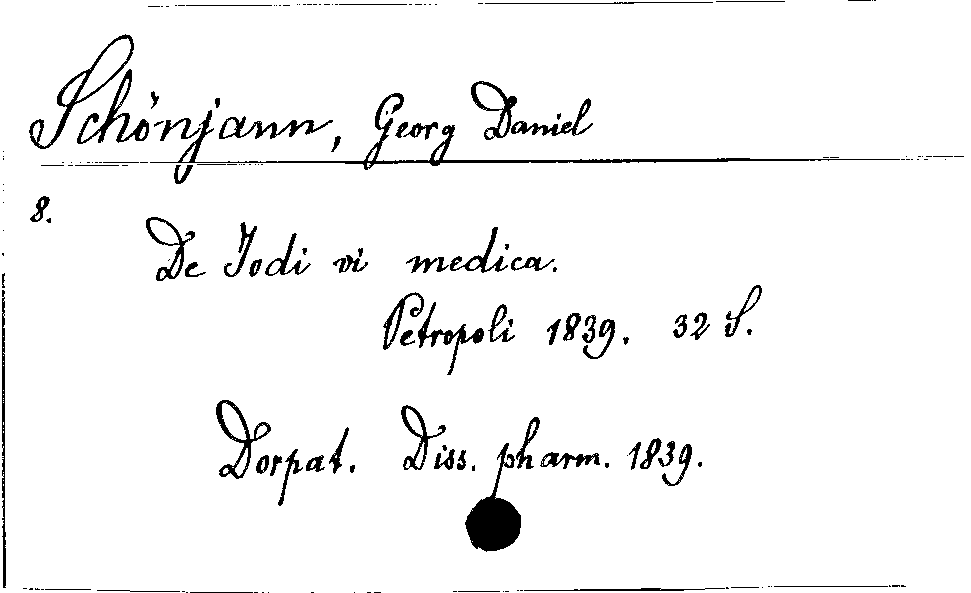 Schönjann, Georg Daniel
8.
De Jodi vi medica.
Petropoli 1839. 32 S.
Dorpat. Diss. pharm. 1839.